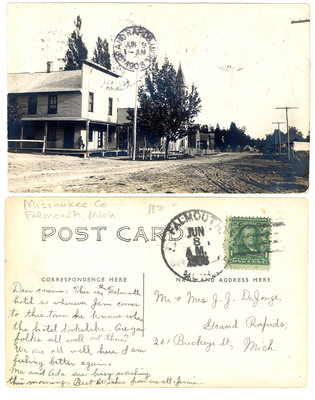 GRAND RAPIDS
JUN 9
1-AM
1908
Missaukee Co
Falmouth, Mich
POST CARD
FALMOUTH
JUN
8
A.M.
CORRESPONDENCE HERE
NAME AND ADDRESS HERE
Dear cousins: This is the Falmouth
hotel so whenever Jem comes
to this town he knows what
the hotel looks like. Are
folks all well out there?
We are all well here I am
feeling better again.
Ma and Ada are busy washing
this morning. Best Wishes from us all, Jennie.
Mr & Mrs J. J. DeJonge,
Grand Rapids,
261 Buckeye St, Mich.